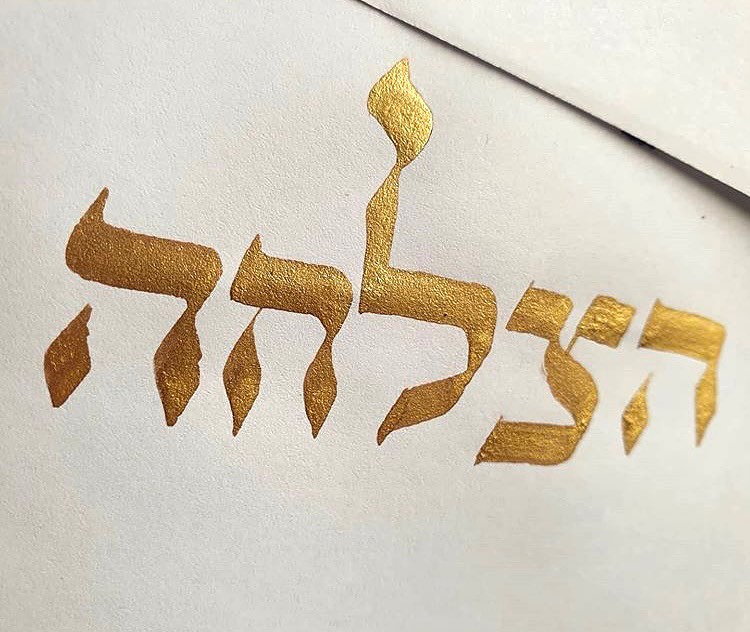 הצלחה